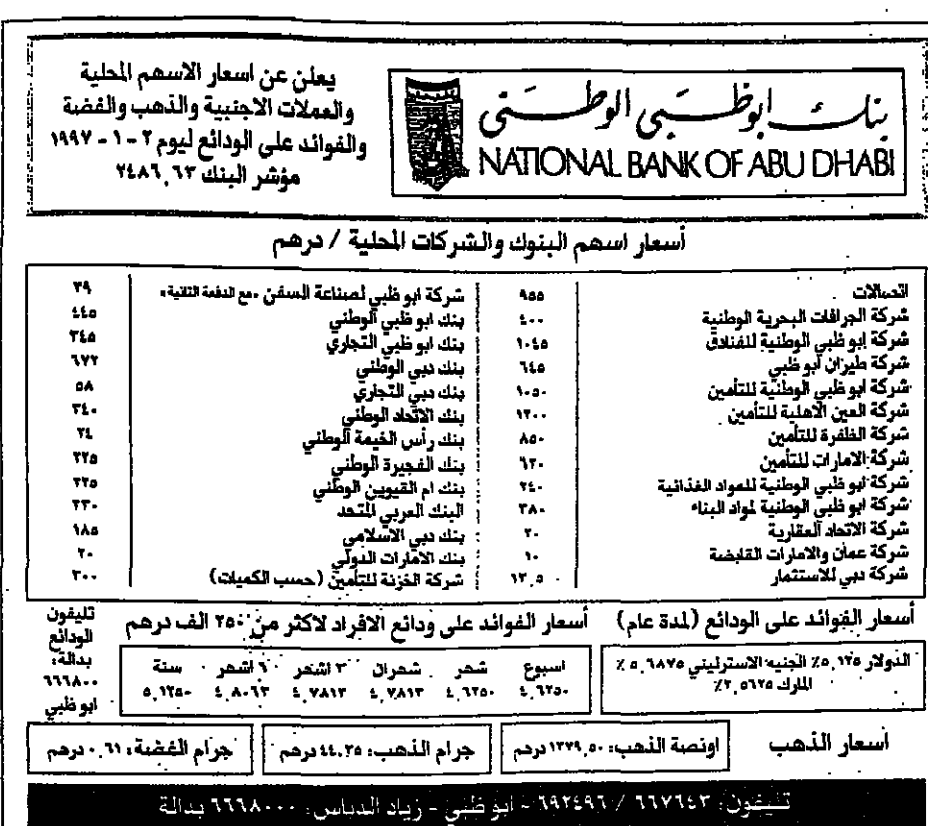 بنك ابوظبي الوطني
NATIONAL BANK OF ABU DHABI
يعلن عن اسعار الاسهم المحلية
والعملات الاجنبية والذهب والفضة
والفوائد على الودائع ليوم ٢ - ١ - ١٩٩٧
مؤشر البنك ٢٤٨٦,٦٣
أسعار اسهم البنوك والشركات المحلية / درهم
اتصالات ٩٥٥
شركة الجرافات البحرية الوطنية ٤٠٠
شركة ابو ظبي الوطنية للفنادق ١٠٤٥
شركة طيران ابو ظبي ٦٤٥
شركة ابو ظبي الوطنية للتأمين ١٠٥٠
شركة العين الاهلية للتأمين
شركة الظفرة للتأمين ٨٥٠
شركة الامارات للتأمين
شركة ابو ظبي الوطنية للمواد الغذائية ٢٤٠
شركة ابو ظبي الوطنية لمواد البناء ٣٨٠
شركة الاتحاد العقارية
شركة عمان والامارات القابضة ١٠
شركة دبي للاستثمار ١٣,٥
شركة ابو ظبي لصناعة السفن «مع الدفعة الثانية» ٣٩
بنك ابو ظبي الوطني ٤٤٥
بنك ابو ظبي التجاري ٣٤٥
بنك دبي الوطني ٦٧٢
بنك دبي التجاري ٥٨
بنك الاتحاد الوطني ٣٤٠
بنك رأس الخيمة الوطني
بنك الفجيرة الوطني
بنك ام القيوين الوطني
البنك العربي المتحد
بنك دبي الاسلامي ١٨٥
بنك الامارات الدولي ٢٠
شركة الخزنة للتأمين (حسب الكميات) ٣٠٠
أسعار الفوائد على الودائع (لمدة عام)
الدولار ٥,١٢٥٪ الجنيه الاسترليني ٥,٦٨٧٥٪
المارك ٢,٥٦٢٥٪
أسعار الفوائد على ودائع الافراد لاكثر من ٢٥٠ الف درهم
اسبوع شهر شهران ٣ اشهر ٦ اشهر سنة
٤,٦٢٥٠ ٤,٦٢٥٠ ٤,٧٨١٣ ٤,٧٨١٣ ٤,٨٠٦٣ ٥,١٢٥٠
تليفون
الودائع
بدالة:
٦٦٦٨٠٠
ابو ظبي
أسعار الذهب
اونصة الذهب: ١٣٧٩,٥٠ درهم
جرام الذهب: ٤٤,٣٥ درهم
جرام الفضة: ٠,٦١ درهم
تليفون: ٦٦٧٦٤٣ / ٦٩٢٤٩٦ - ابو ظبي - زياد الدباس: ٦٦٦٨٠٠٠ بدالة